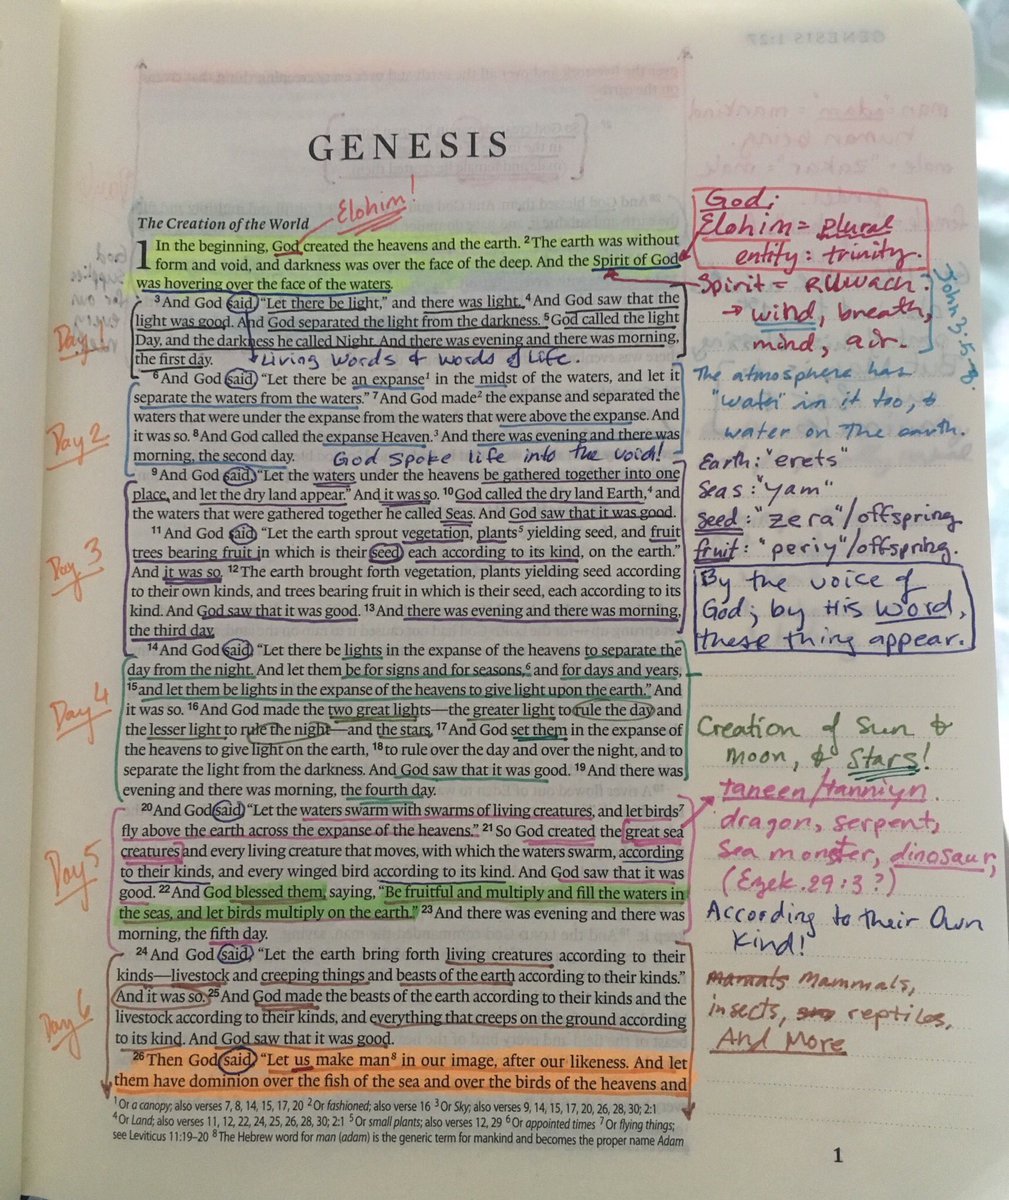 GENESIS 1:27
GENESIS
Elohim!
The Creation of the World
1 In the beginning, God created the heavens and the earth. 2 The earth was without
form and void, and darkness was over the face of the deep. And the Spirit of God
was hovering over the face of the waters.
3 And God said, "Let there be light," and there was light. 4 And God saw that the
light was good. And God separated the light from the darkness. 5 God called the light
Day, and the darkness he called Night. And there was evening and there was morning,
the first day.
Living Words & Words of Life.
6 And God said, "Let there be an expanse1 in the midst of the waters, and let it
separate the waters from the waters." 7 And God made2 the expanse and separated the
waters that were under the expanse from the waters that were above the expanse. And
it was so. 8 And God called the expanse Heaven.3 And there was evening and there was
morning, the second day.
God spoke life into the void!
9 And God said, "Let the waters under the heavens be gathered together into one
place, and let the dry land appear." And it was so. 10 God called the dry land Earth,4 and
the waters that were gathered together he called Seas. And God saw that it was good.
11 And God said, "Let the earth sprout vegetation, plants5 yielding seed, and fruit
trees bearing fruit in which is their seed, each according to its kind, on the earth."
And it was so. 12 The earth brought forth vegetation, plants yielding seed according
to their own kinds, and trees bearing fruit in which is their seed, each according to its
kind. And God saw that it was good. 13 And there was evening and there was morning,
the third day.
14 And God said, "Let there be lights in the expanse of the heavens to separate the
day from the night. And let them be for signs and for seasons,6 and for days and years,
15 and let them be lights in the expanse of the heavens to give light upon the earth." And
it was so. 16 And God made the two great lights—the greater light to rule the day and
the lesser light to rule the night—and the stars. 17 And God set them in the expanse of
the heavens to give light on the earth, 18 to rule over the day and over the night, and to
separate the light from the darkness. And God saw that it was good. 19 And there was
evening and there was morning, the fourth day.
20 And God said, "Let the waters swarm with swarms of living creatures, and let birds7
fly above the earth across the expanse of the heavens." 21 So God created the great sea
creatures and every living creature that moves, with which the waters swarm, according
to their kinds, and every winged bird according to its kind. And God saw that it was
good. 22 And God blessed them, saying, "Be fruitful and multiply and fill the waters in
the seas, and let birds multiply on the earth." 23 And there was evening and there was
morning, the fifth day.
24 And God said, "Let the earth bring forth living creatures according to their
kinds—livestock and creeping things and beasts of the earth according to their kinds."
And it was so. 25 And God made the beasts of the earth according to their kinds and the
livestock according to their kinds, and everything that creeps on the ground according
to its kind. And God saw that it was good.
26 Then God said, "Let us make man8 in our image, after our likeness. And let
them have dominion over the fish of the sea and over the birds of the heavens and
1 Or a canopy; also verses 7, 8, 14, 15, 17, 20 2 Or fashioned; also verse 16 3 Or Sky; also verses 9, 14, 15, 17, 20, 26, 28, 30; 2:1
4 Or Land; also verses 11, 12, 22, 24, 25, 26, 28, 30; 2:1 5 Or small plants; also verses 12, 29 6 Or appointed times 7 Or flying things;
see Leviticus 11:19–20 8 The Hebrew word for man (adam) is the generic term for mankind and becomes the proper name Adam
1
Day 1
Day 2
Day 3
Day 4
Day 5
Day 6
God:
Elohim = Plural
entity: trinity.
Spirit = RUwach.
→ wind, breath,
mind, air.
John 3:5-8.
The atmosphere has
"water" in it too, &
water on The earth.
Earth: "erets"
Seas: "yam"
Seed: "zera"/offspring
fruit: "periy"/offspring.
By the voice of
God; by His Word,
these thing appear.
Creation of Sun &
Moon, & Stars!
taneen/tanniyn
dragon, serpent,
Sea monster, dinosaur,
(Ezek. 29:3?)
According to their Own
Kind!
Mamals Mammals,
insects, reptiles,
And More